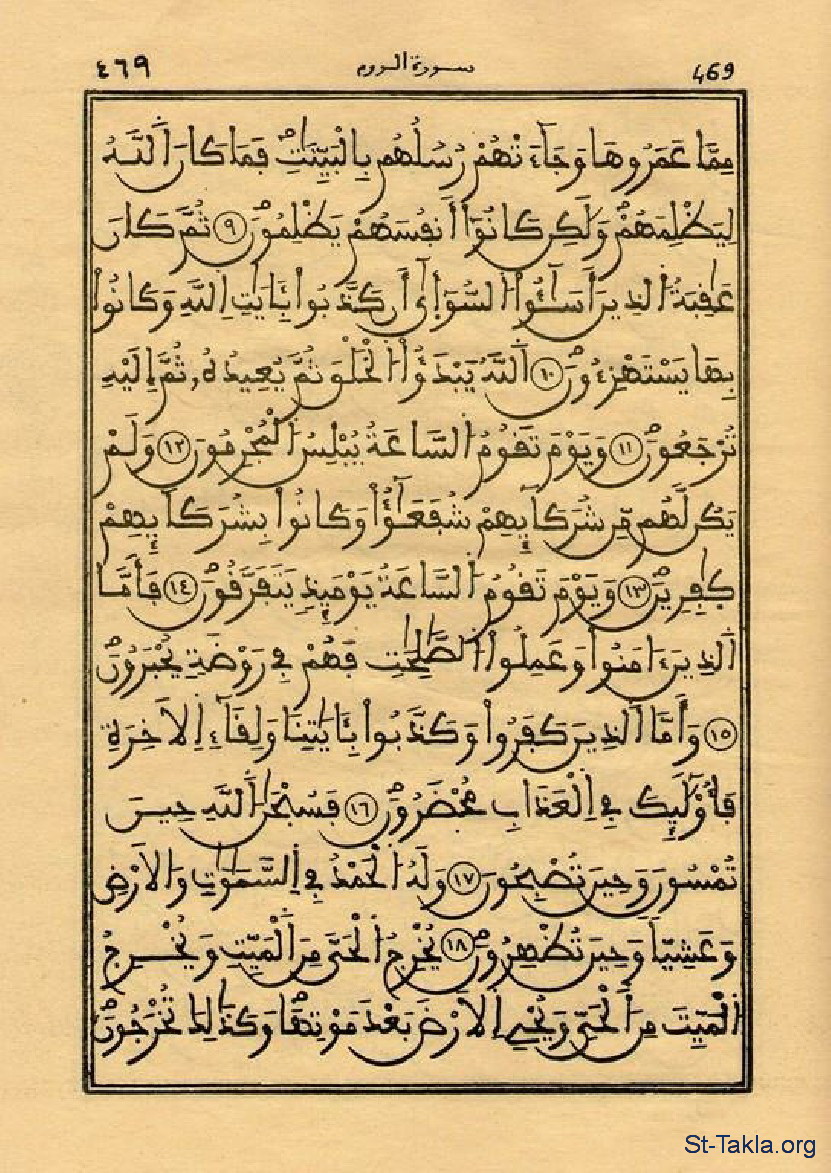 ٤٦٩ سورة الروم 469
مِمَّا عَمَرُوهَا وَجَآءَتْهُمْ رُسُلُهُم بِالْبَيِّنَٰتِ فَمَا كَانَ اَللَّهُ
لِيَظْلِمَهُمْ وَلَٰكِن كَانُوٓاْ أَنفُسَهُمْ يَظْلِمُونَ ٩ ثُمَّ كَانَ
عَٰقِبَةُ اُلذِينَ أَسَٰٓـُٔواْ اُلسُّوٓأَىٰٓ أَن كَذَّبُواْ بِـَٔايَٰتِ اِللَّهِ وَكَانُواْ
بِهَا يَسْتَهْزِءُونَ ١٠ اَللَّهُ يَبْدَؤُاْ اُلْخَلْقَ ثُمَّ يُعِيدُهُۥ ثُمَّ إِلَيْهِ
تُرْجَعُونَ ١١ وَيَوْمَ تَقُومُ اُلسَّاعَةُ يُبْلِسُ اُلْمُجْرِمُونَ ١٢ وَلَمْ
يَكُن لَّهُم مِّن شُرَكَآئِهِمْ شُفَعَٰٓؤُاْ وَكَانُواْ بِشُرَكَآئِهِمْ
كَٰفِرِينَ ١٣ وَيَوْمَ تَقُومُ اُلسَّاعَةُ يَوْمَئِذٍ يَتَفَرَّقُونَ ١٤ فَأَمَّا
اَلذِينَ ءَامَنُواْ وَعَمِلُواْ اُلصَّٰلِحَٰتِ فَهُمْ فِي رَوْضَةٍ يُحْبَرُونَ
١٥ وَأَمَّا اَلذِينَ كَفَرُواْ وَكَذَّبُواْ بِـَٔايَٰتِنَا وَلِقَآءِ اِلَاخِرَةِ
فَأُوْلَٰٓئِكَ فِي اِلْعَذَابِ مُحْضَرُونَ ١٦ فَسُبْحَٰنَ اَللَّهِ حِينَ
تُمْسُونَ وَحِينَ تُصْبِحُونَ ١٧ وَلَهُ اُلْحَمْدُ فِي اِلسَّمَٰوَٰتِ وَالَارْضِ
وَعَشِيّاً وَحِينَ تُظْهِرُونَ ١٨ يُخْرِجُ اُلْحَيَّ مِنَ اَلْمَيِّتِ وَيُخْرِجُ
اُلْمَيِّتَ مِنَ اَلْحَيِّ وَيُحْيِ اِلَارْضَ بَعْدَ مَوْتِهَا وَكَذَٰلِكَ تُخْرَجُونَ
St-Takla.org